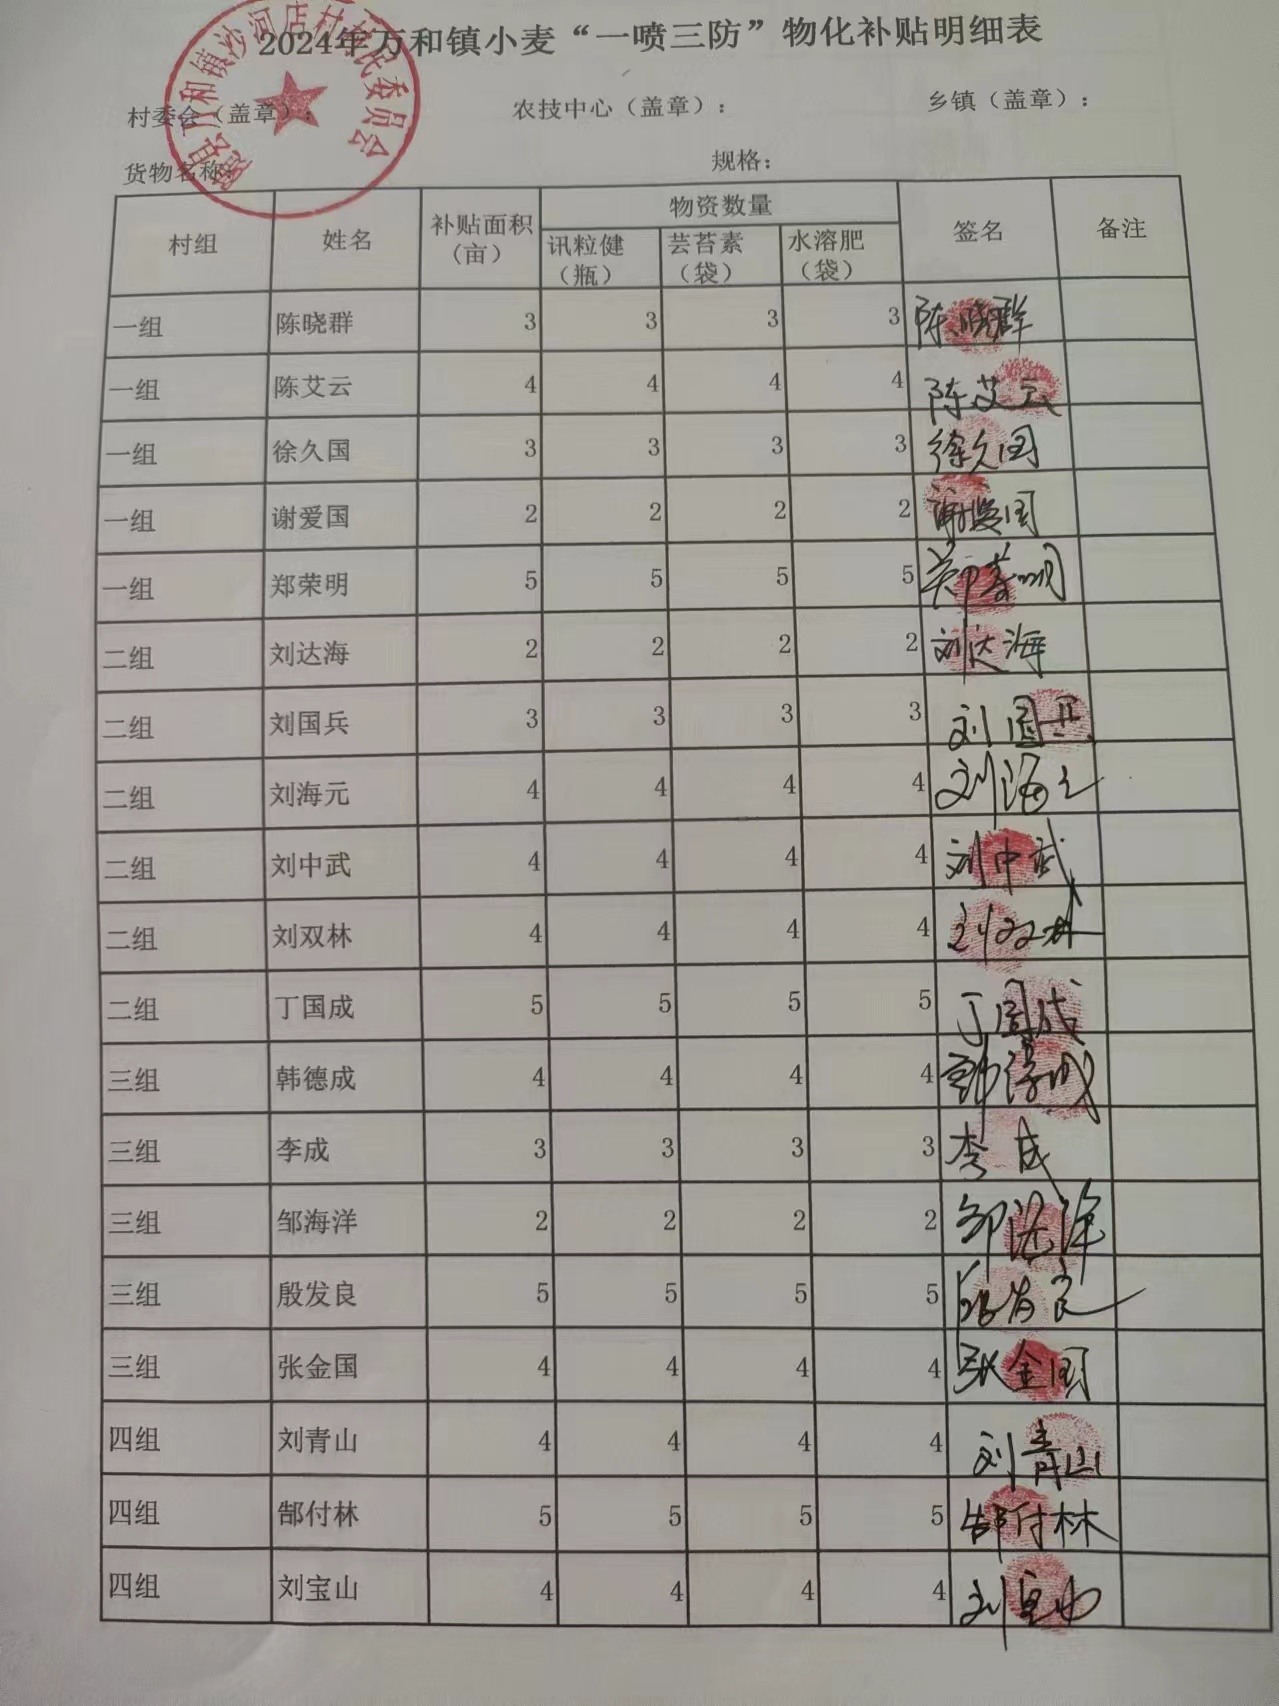 2024年万和镇小麦“一喷三防”物化补贴明细表
随县万和镇沙河店村村民委员会
村委会（盖章）： 农技中心（盖章）： 乡镇（盖章）：
货物名称： 规格：
村组 姓名 补贴面积（亩） 物资数量 签名 备注
讯粒健（瓶） 芸苔素（袋） 水溶肥（袋）
一组 陈晓群 3 3 3 3 陈晓群
一组 陈艾云 4 4 4 4 陈艾云
一组 徐久国 3 3 3 3 徐久国
一组 谢爱国 2 2 2 2 谢爱国
一组 郑荣明 5 5 5 5 郑荣明
二组 刘达海 2 2 2 2 刘达海
二组 刘国兵 3 3 3 3 刘国兵
二组 刘海元 4 4 4 4 刘海元
二组 刘中武 4 4 4 4 刘中武
二组 刘双林 4 4 4 4 刘双林
二组 丁国成 5 5 5 5 丁国成
三组 韩德成 4 4 4 4 韩德成
三组 李成 3 3 3 3 李成
三组 邹海洋 2 2 2 2 邹海洋
三组 殷发良 5 5 5 5 殷发良
三组 张金国 4 4 4 4 张金国
四组 刘青山 4 4 4 4 刘青山
四组 郜付林 5 5 5 5 郜付林
四组 刘宝山 4 4 4 4 刘宝山